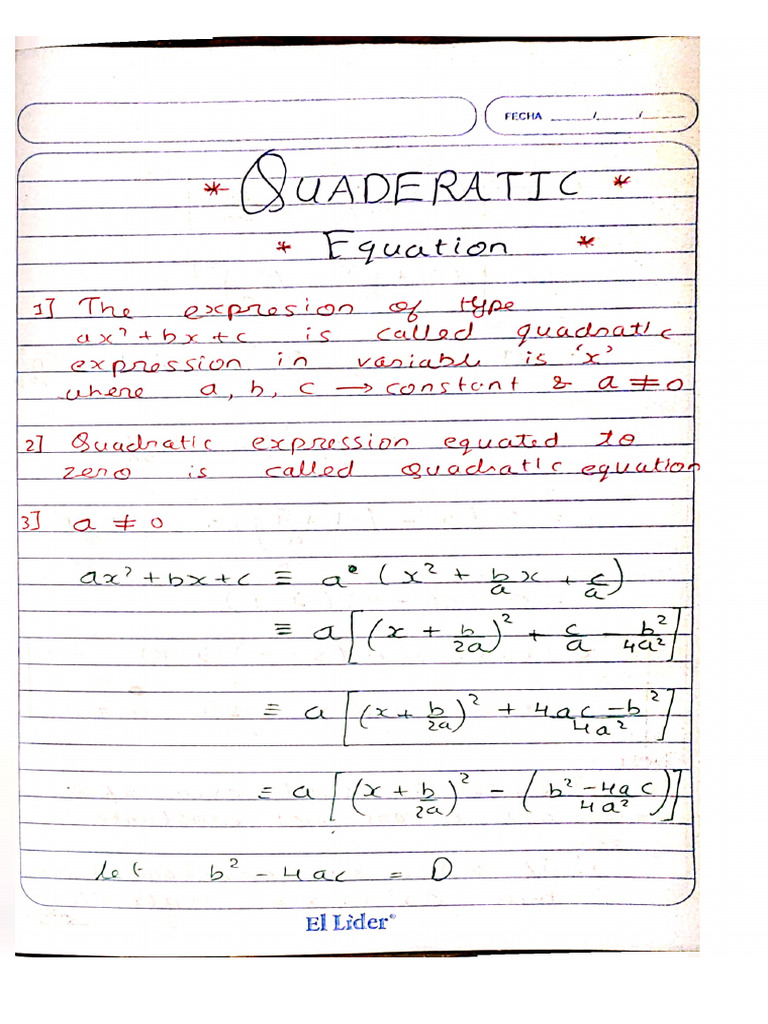 FECHA ____/____/____
* QUADERATIC *
* Equation *
1] The expresion of type
ax² + bx + c is called quadratic
expression in variable is 'x'
where a, b, c → constant & a ≠ 0
2] Quadratic expression equated to
zero is called Quadratic equation
3] a ≠ 0
ax² + bx + c ≡ a (x² + b/a x + c/a)
≡ a [(x + b/2a)² + c/a - b²/4a²]
≡ a [(x + b/2a)² + 4ac - b²/4a²]
= a [(x + b/2a)² - (b² - 4ac/4a²)]
let b² - 4ac = D
El Lider®